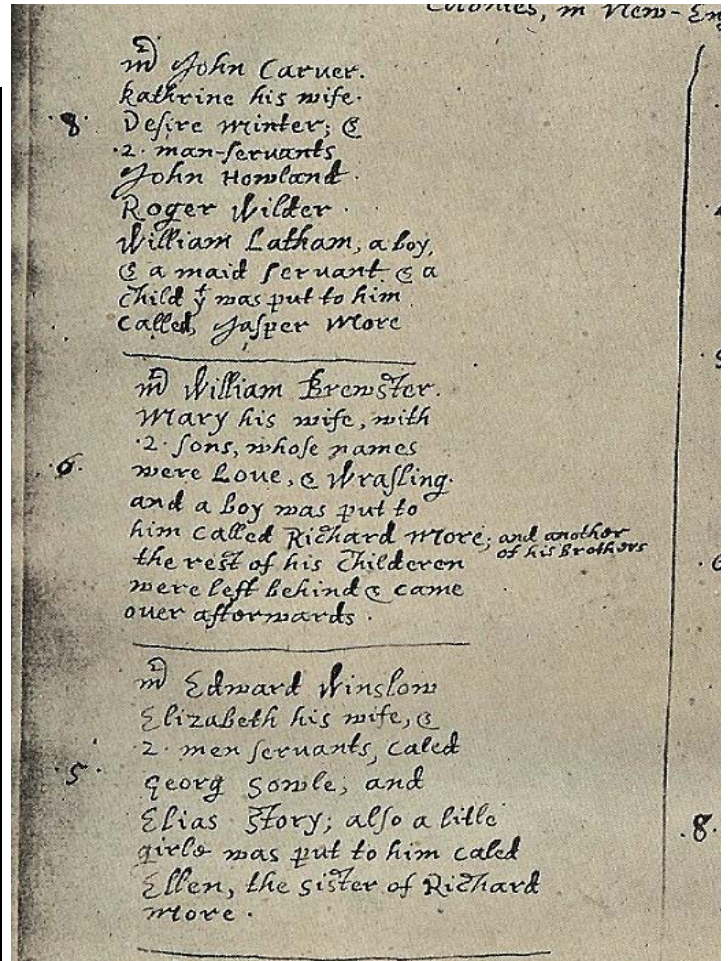 Colonies, in New-En
mr John Carver.
kathrine his wife.
Desire Minter; &
·2· man-ſervants
John Howland.
Roger Wilder.
William Latham, a boy,
& a maid ſervant & a
child yt was put to him
called, Jaſper More
·8·
mr William Brewster.
Mary his wife, with
·2· ſons, whoſe names
were Love, & Wraſling.
and a boy was put to
him called Richard More; and another
of his brothers
the rest of his childeren
were left behind & came
over afterwards.
·6·
mr Edward Winslow
Elizabeth his wife, &
·2· men ſervants, caled
Georg Sowle, and
Elias Story; also a litle
girle was put to him caled
Ellen, the sister of Richard
More.
·5·
·8·